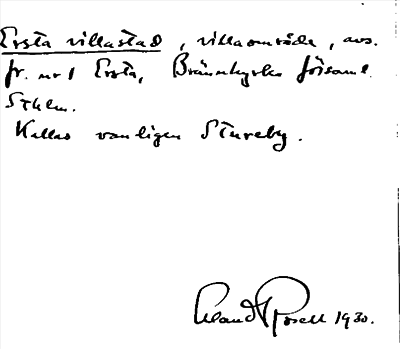 Ersta villastad, villaområde, avs.
fr. nr 1 Ersta, Brännkyrka församl.
Sthlm.
Kallas vanligen Stureby.
Rosell 1930.